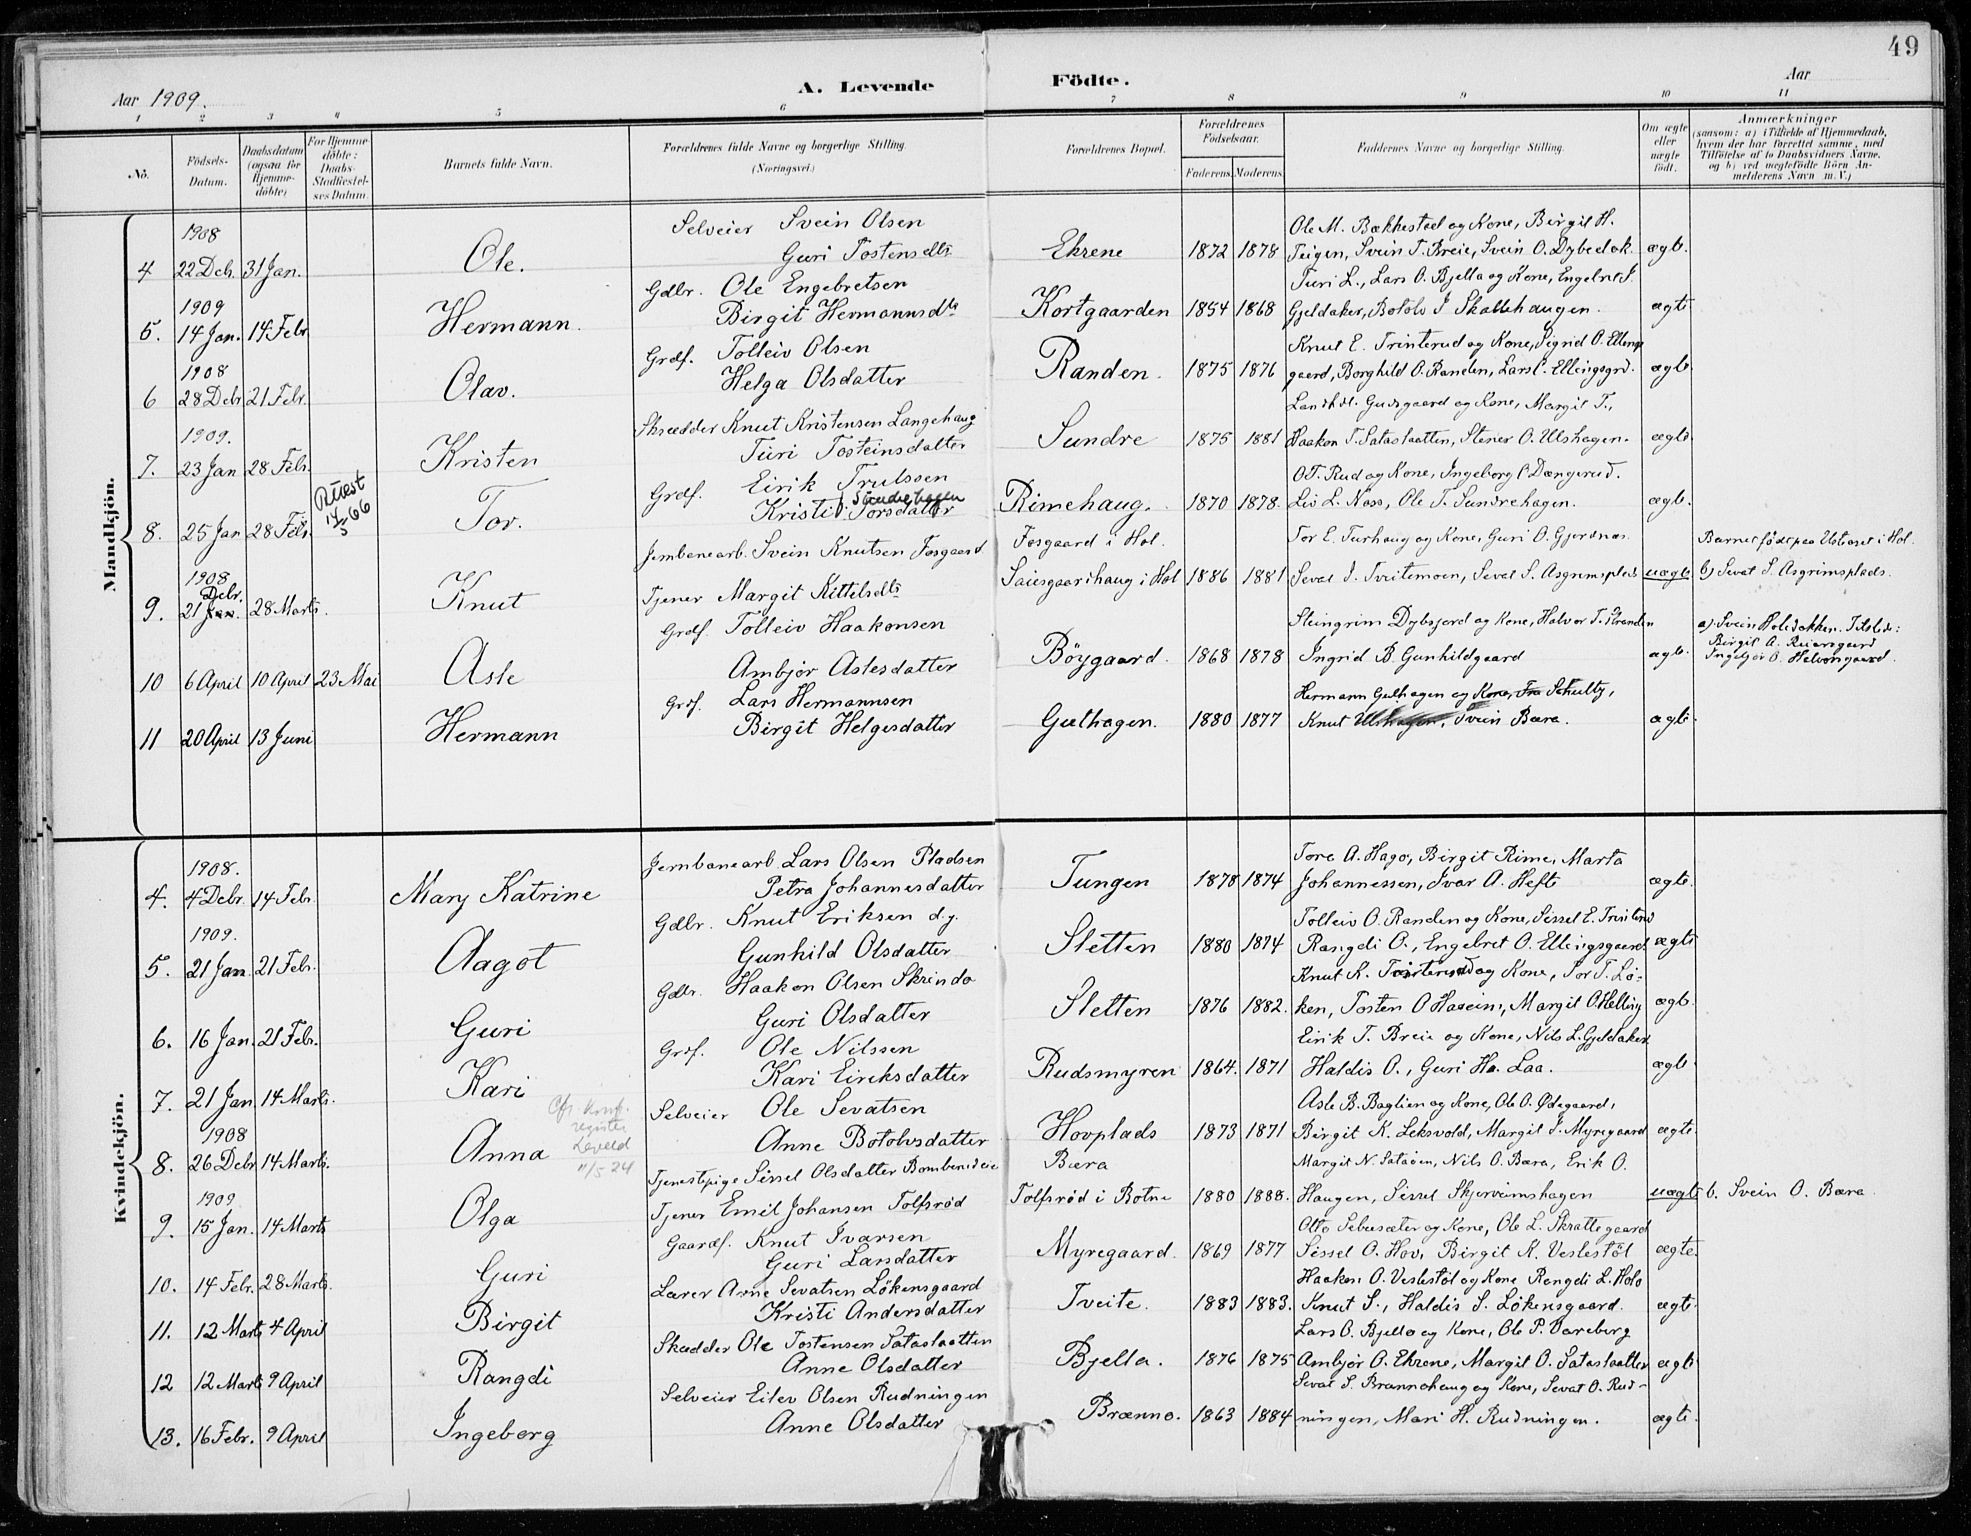 49
Aar 1909. A. Levende Födte. Aar
1 2 3 4 5 6 7 8 9 10 11
No. Födsels-Datum. Daabsdatum (ogsaa for Hjemme-döbte) For Hjemme-döbte: Daabs-Stadfestel-ses Datum. Barnets fulde Navn. Forældrenes fulde Navne og borgerlige Stilling. (Næringsvei.) Forældrenes Bopæl. Forældrenes Födselsaar. Faderens Moderens Faddernes Navne og borgerlige Stilling. Om ægte eller uægte födt. Anmærkninger (saasom: a) i Tilfælde af Hjemmedaab, hvem der har forrettet samme, med Tilföielse af to Daabsvidners Navne, og b) ved uægtefödte Börn An-melderens Navn m. V.)
Mandkjön.
1908 Selveier Svein Olsen Ole M. Bækkestad og Kone, Birgit H.
4 22 Deb. 31 Jan. Ole. Guri Tostensdtr Ekrene 1872 1878 Teigen, Svein T. Breie, Svein O. Dybedok. ægt.
1909 Gdbr. Ole Engebretsen Turi L., Lars O. Bjella og Kone, Engebret J.
5. 14 Jan. 14 Febr Hermann. Birgit Hermannsdtr Kortgaarden 1854 1868 Gjeldaker, Botolv J Skallehaugen. ægte
1908 Grdf. Tolleiv Olsen Knut E. Trinterud og Kone, Sigrid O. Ellings
6 28 Debr 21 Febr. Olav. Helga Olsdatter Randen. 1875 1876 gaard, Borghild O. Randen, Lars O. Ellingsgrd. ægte.
1909. Skrædder Knut Kristensen Langehaug Landhdl. Gudsgaard og Kone, Margit T.,
7. 23 Jan 28 Febr. Kristen Turi Tosteinsdatter Sundre 1875 1881 Haakon T. Sataslaatten, Stener O. Ulshagen. ægte
Attest 14/5 66 Grdf. Eirik Trulssen O.T. Rud og Kone, Ingeborg O Dængerud.
8. 25 Jan 28 Febr. Tor. Kristi Torsdatter Sundrehagen Rimehaug. 1870 1878. Liv L. Næss, Ole T. Sundrehagen. ægte.
1908 Jernbanearb. Svein Knutsen Fosgaard Fosgaard i Hol. Tor E. Turhaug og Kone, Guri O. Gjerdnæs. Barnet født paa Ustaoset i Hol.
9. 21 Jan. Debr. 28 Marts. Knut Tjener Margit Kittilsdtr Saiesgaardhaug i Hol 1886 1881 Sevat J. Tveitemoen, Sevat S. Asgrimsplads uægte b) Sevat S. Asgrimsplads.
Grdf. Tolleiv Haakonsen Steingrim Dybsjord og Kone, Halvor T. Stranden a) Svein Holdokken. Tilstede:
10 6 April 10 April 23 Mai Asle Ambjør Aslesdatter Böygaard. 1868 1878 Ingrid B. Gunhildgaard ægte. Birgit A. Reiersgaard Ingebjør O. Halvorsgaard.
Grdf. Lars Hermannsen Hermann Gulhagen og Kone, Fru Schultz,
11 20 April 13 Juni Hermann Birgit Helgesdatter Gulhagen. 1880 1877 Knut Ulshagen, Svein Bæra. ægte.
Kvindekjön.
1908. Jernbanearb Lars Olsen Pladsen Tore A. Hago, Birgit Rime, Marta
4. 4 Debr. 14 Febr. Mary Katrine Petra Johannesdatter Tungen 1878 1874 Johannessen, Ivar A. Hefte ægte.
1909. Gdbr. Knut Eriksen d.y. Tolleiv O. Randen og Kone, Sissel E. Trinterud
5. 21 Jan. 21 Febr. Aagot Gunhild Olsdatter Sletten 1880 1874 Rangdi O., Engebret O. Ellingsgaard ægte
Gdbr. Haakon Olsen Skrindo Knut K. Trinterud og Kone, Tor T. Lø-
6. 16 Jan. 21 Febr. Guri Guri Olsdatter Sletten 1876 1882. ken, Tosten O Hasein, Margit O Helling ægte.
Grdf. Ole Nilssen Eirik T. Breie og Kone, Nils L. Gjeldaker
7. 21 Jan 14 Marts. Kari Kari Eiriksdatter Rudsmyren 1864. 1871 Haldis O., Guri Ha. Laa. ægte
1908 Cfr. konf. register Leveld 11/5 24 Selveier Ole Sevatsen Asle B. Baglien og Kone, Ole O. Ødegaard,
8. 26 Debr 14 Marts. Anna Anne Botolvsdatter Hovplads 1873 1871 Birgit K. Leksvold, Margit J. Myregaard ægte.
1909. Tjenestepige Sissel Olsdatter Bæra Margit N. Sataøen, Nils O. Bæra, Erik O.
9. 15 Jan. 14 Marts Olga Tjener Emil Johansen Tolfsrød Tolfsrød i Botne 1880 1888. Haugen, Sissel Skjerveimshagen uægte b. Svein O. Bæra
Gaardf. Knut Ivarsen Otto Sebusæter og Kone, Ole L. Skrattegaard
10. 14 Febr. 28 Marts. Guri Guri Larsdatter Myregaard. 1869 1877 Sissel O. Hov, Birgit K. Veslestøl ægte.
Lærer Arne Sevatsen Lökensgaard Haakon O. Veslestøl og Kone Rangdi L. Holo
11. 12 Marts 4 April Birgit Kristi Andersdatter Tveite. 1883 1883. Knut S., Haldis S. Lökensgaard. ægte.
Skrædder Ole Tostensen Sataslaatten Lars O. Bjella og Kone, Ole P. Vareberg
12 12 Marts 9 April Rangdi Anne Olsdatter Bjella. 1876 1875 Ambjør O. Ekrene, Margit O. Sataslaatten ægte
Selveier Eilev Olsen Rudningen Sevat S. Brannehaug og Kone, Sevat O. Rud-
13. 16 Febr. 9 April Ingeborg Anne Olsdatter Brænno. 1863 1884 ningen, Mari H. Rudningen. ægte.